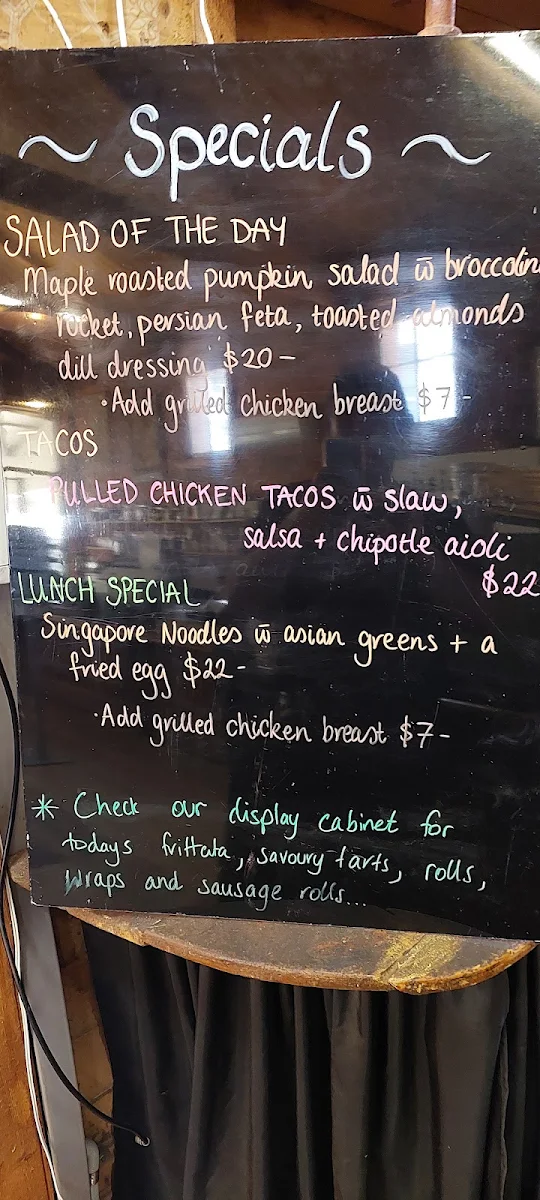 ~ Specials ~
SALAD OF THE DAY
Maple roasted pumpkin salad w̄ broccolin
rocket, persian feta, toasted almonds
dill dressing $20-
·Add grilled chicken breast $7-
TACOS
PULLED CHICKEN TACOS w̄ slaw,
salsa + chipotle aioli
$22
LUNCH SPECIAL
Singapore Noodles w̄ asian greens + a
fried egg $22-
·Add grilled chicken breast $7-
* Check our display cabinet for
todays frittata, savoury tarts, rolls,
wraps and sausage rolls...